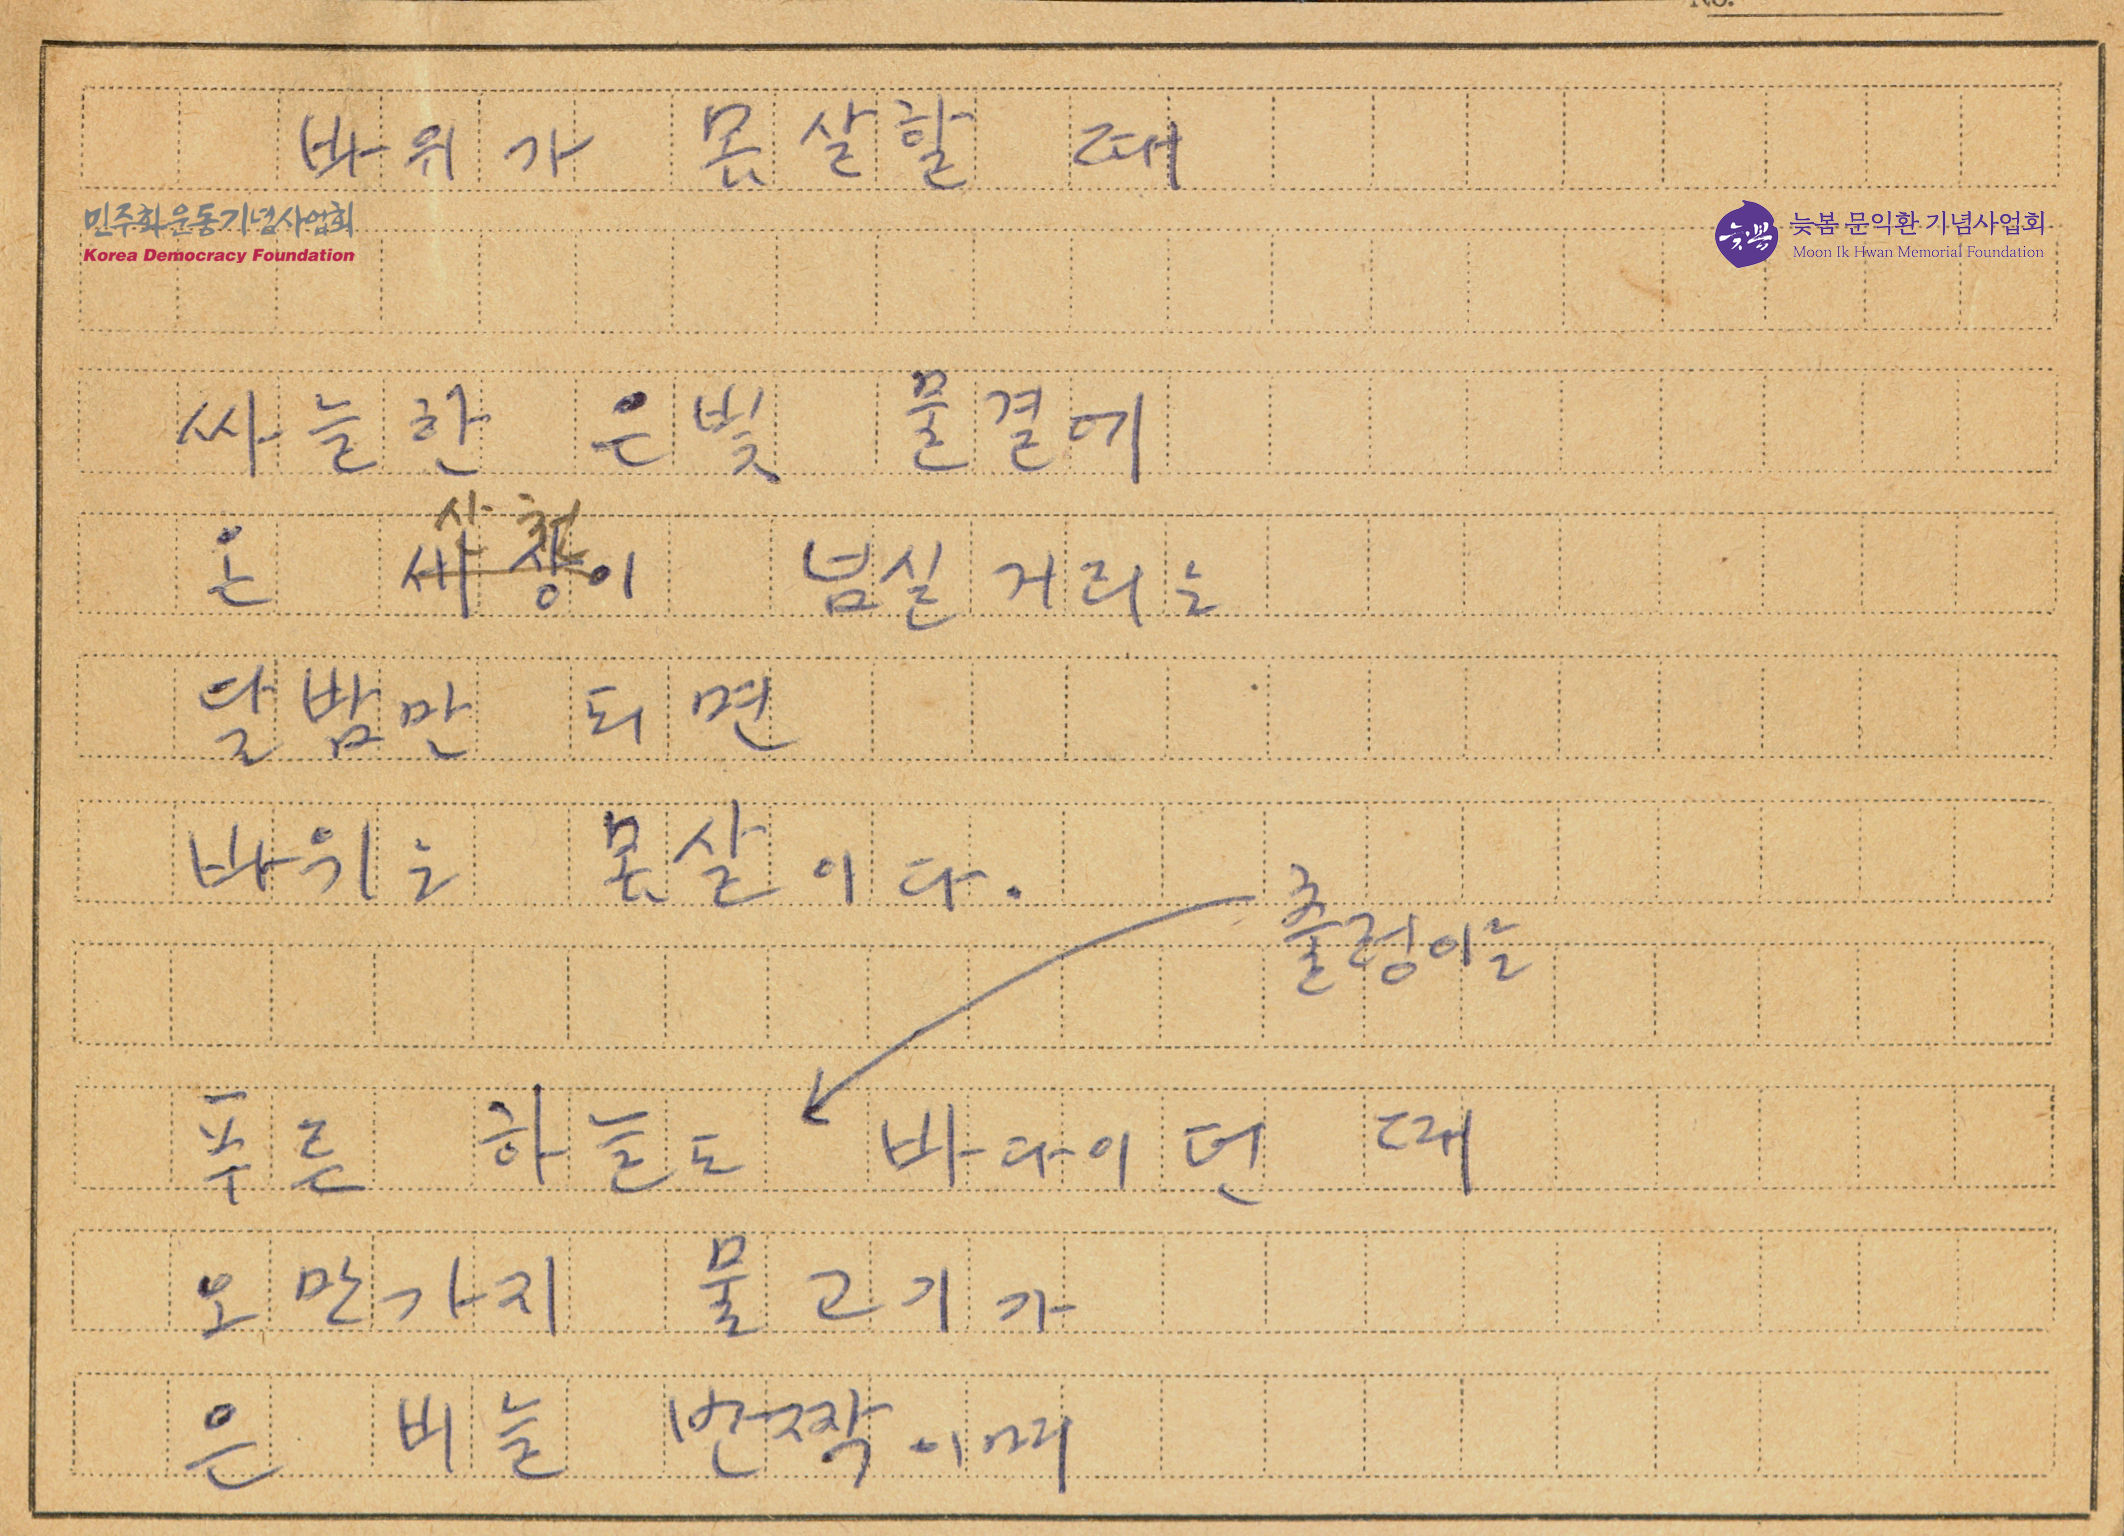 No.
바위가 몸살할 때
민주화운동기념사업회
Korea Democracy Foundation
늦봄
늦봄 문익환 기념사업회
Moon Ik Hwan Memorial Foundation
싸늘한 은빛 물결에
산천
온 세상이 넘실거리는
달밤만 되면
바위는 몸살이다.
출렁이는
푸른 하늘도 바다이던 때
오만가지 물고기가
은 비늘 번짝이며